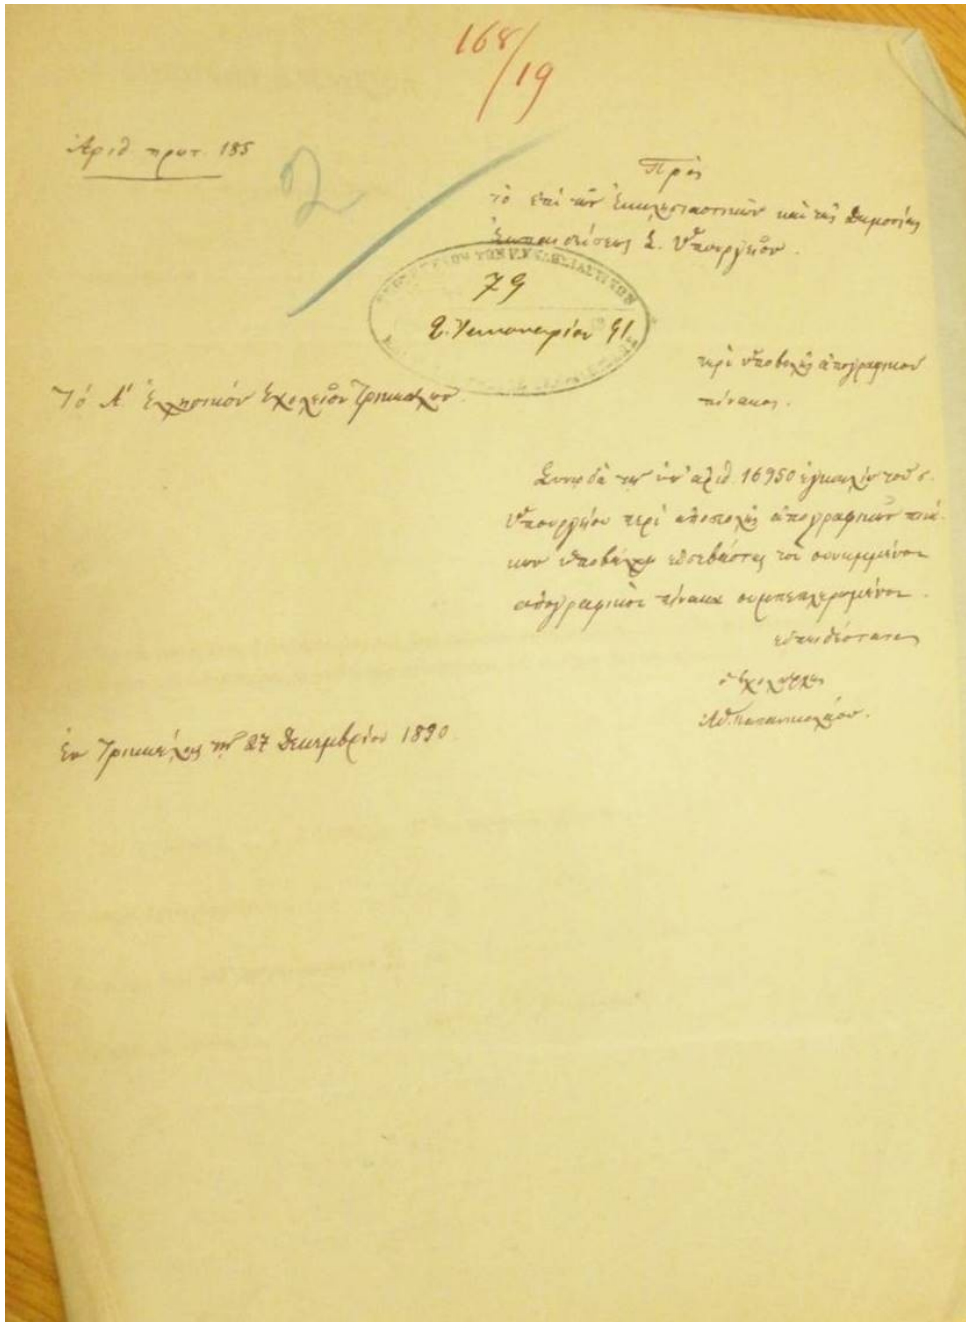 168/19
Ἀριθ. πρωτ. 185
Πρὸς
τὸ ἐπὶ τῶν Ἐκκλησιαστικῶν καὶ τῆς Δημοσίας
Ἐκπαιδεύσεως Σ. Ὑπουργεῖον.
ΥΠΟΥΡΓΕΙΟΝ ΤΩΝ ΕΚΚΛΗΣΙΑΣΤΙΚΩΝ
79
2 Ἰαννουαρίου 91
περὶ ὑποβολῆς ἀπογραφικοῦ
πίνακος.
Τὸ Α΄ Ἑλληνικὸν Σχολεῖον Τρικκάλων.
Συνῳδὰ τῇ ὑπ' ἀριθ. 16950 ἐγκυκλίῳ τοῦ Σ.
Ὑπουργείου περὶ ἀποστολῆς ἀπογραφικῶν πινά-
κων ὑποβάλλω εὐσεβάστως τὸν συνημμένον
ἀπογραφικὸν πίνακα συμπεπληρωμένον.
εὐπειθέστατος
ὁ Σχολάρχης
Ἀθ. Παπανικολάου.
Ἐν Τρικκάλοις τῇ 27 Δεκεμβρίου 1890.